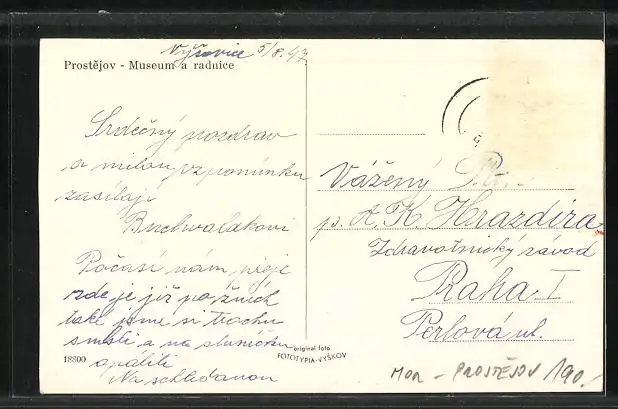 Vyšovice 5/8.47
Prostějov - Museum a radnice
Srdečný pozdrav
a milou vzpomínku
zasílají
Buchwaldkovi
Počasí nám přeje
zde je již po žních
také jsme si trochu
směli a na sluníčku
opálili
Na schledanou
18800
original foto
FOTOTYPIA-VYŠKOV
Vážený
p. A. K. Hrazdira
Zdravotnický závod
Praha I
Perlová ul.
MOR - PROSTĚJOV 190.